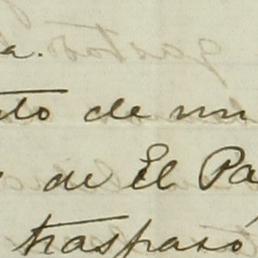 a.
to de un
de El Pa
traspasó